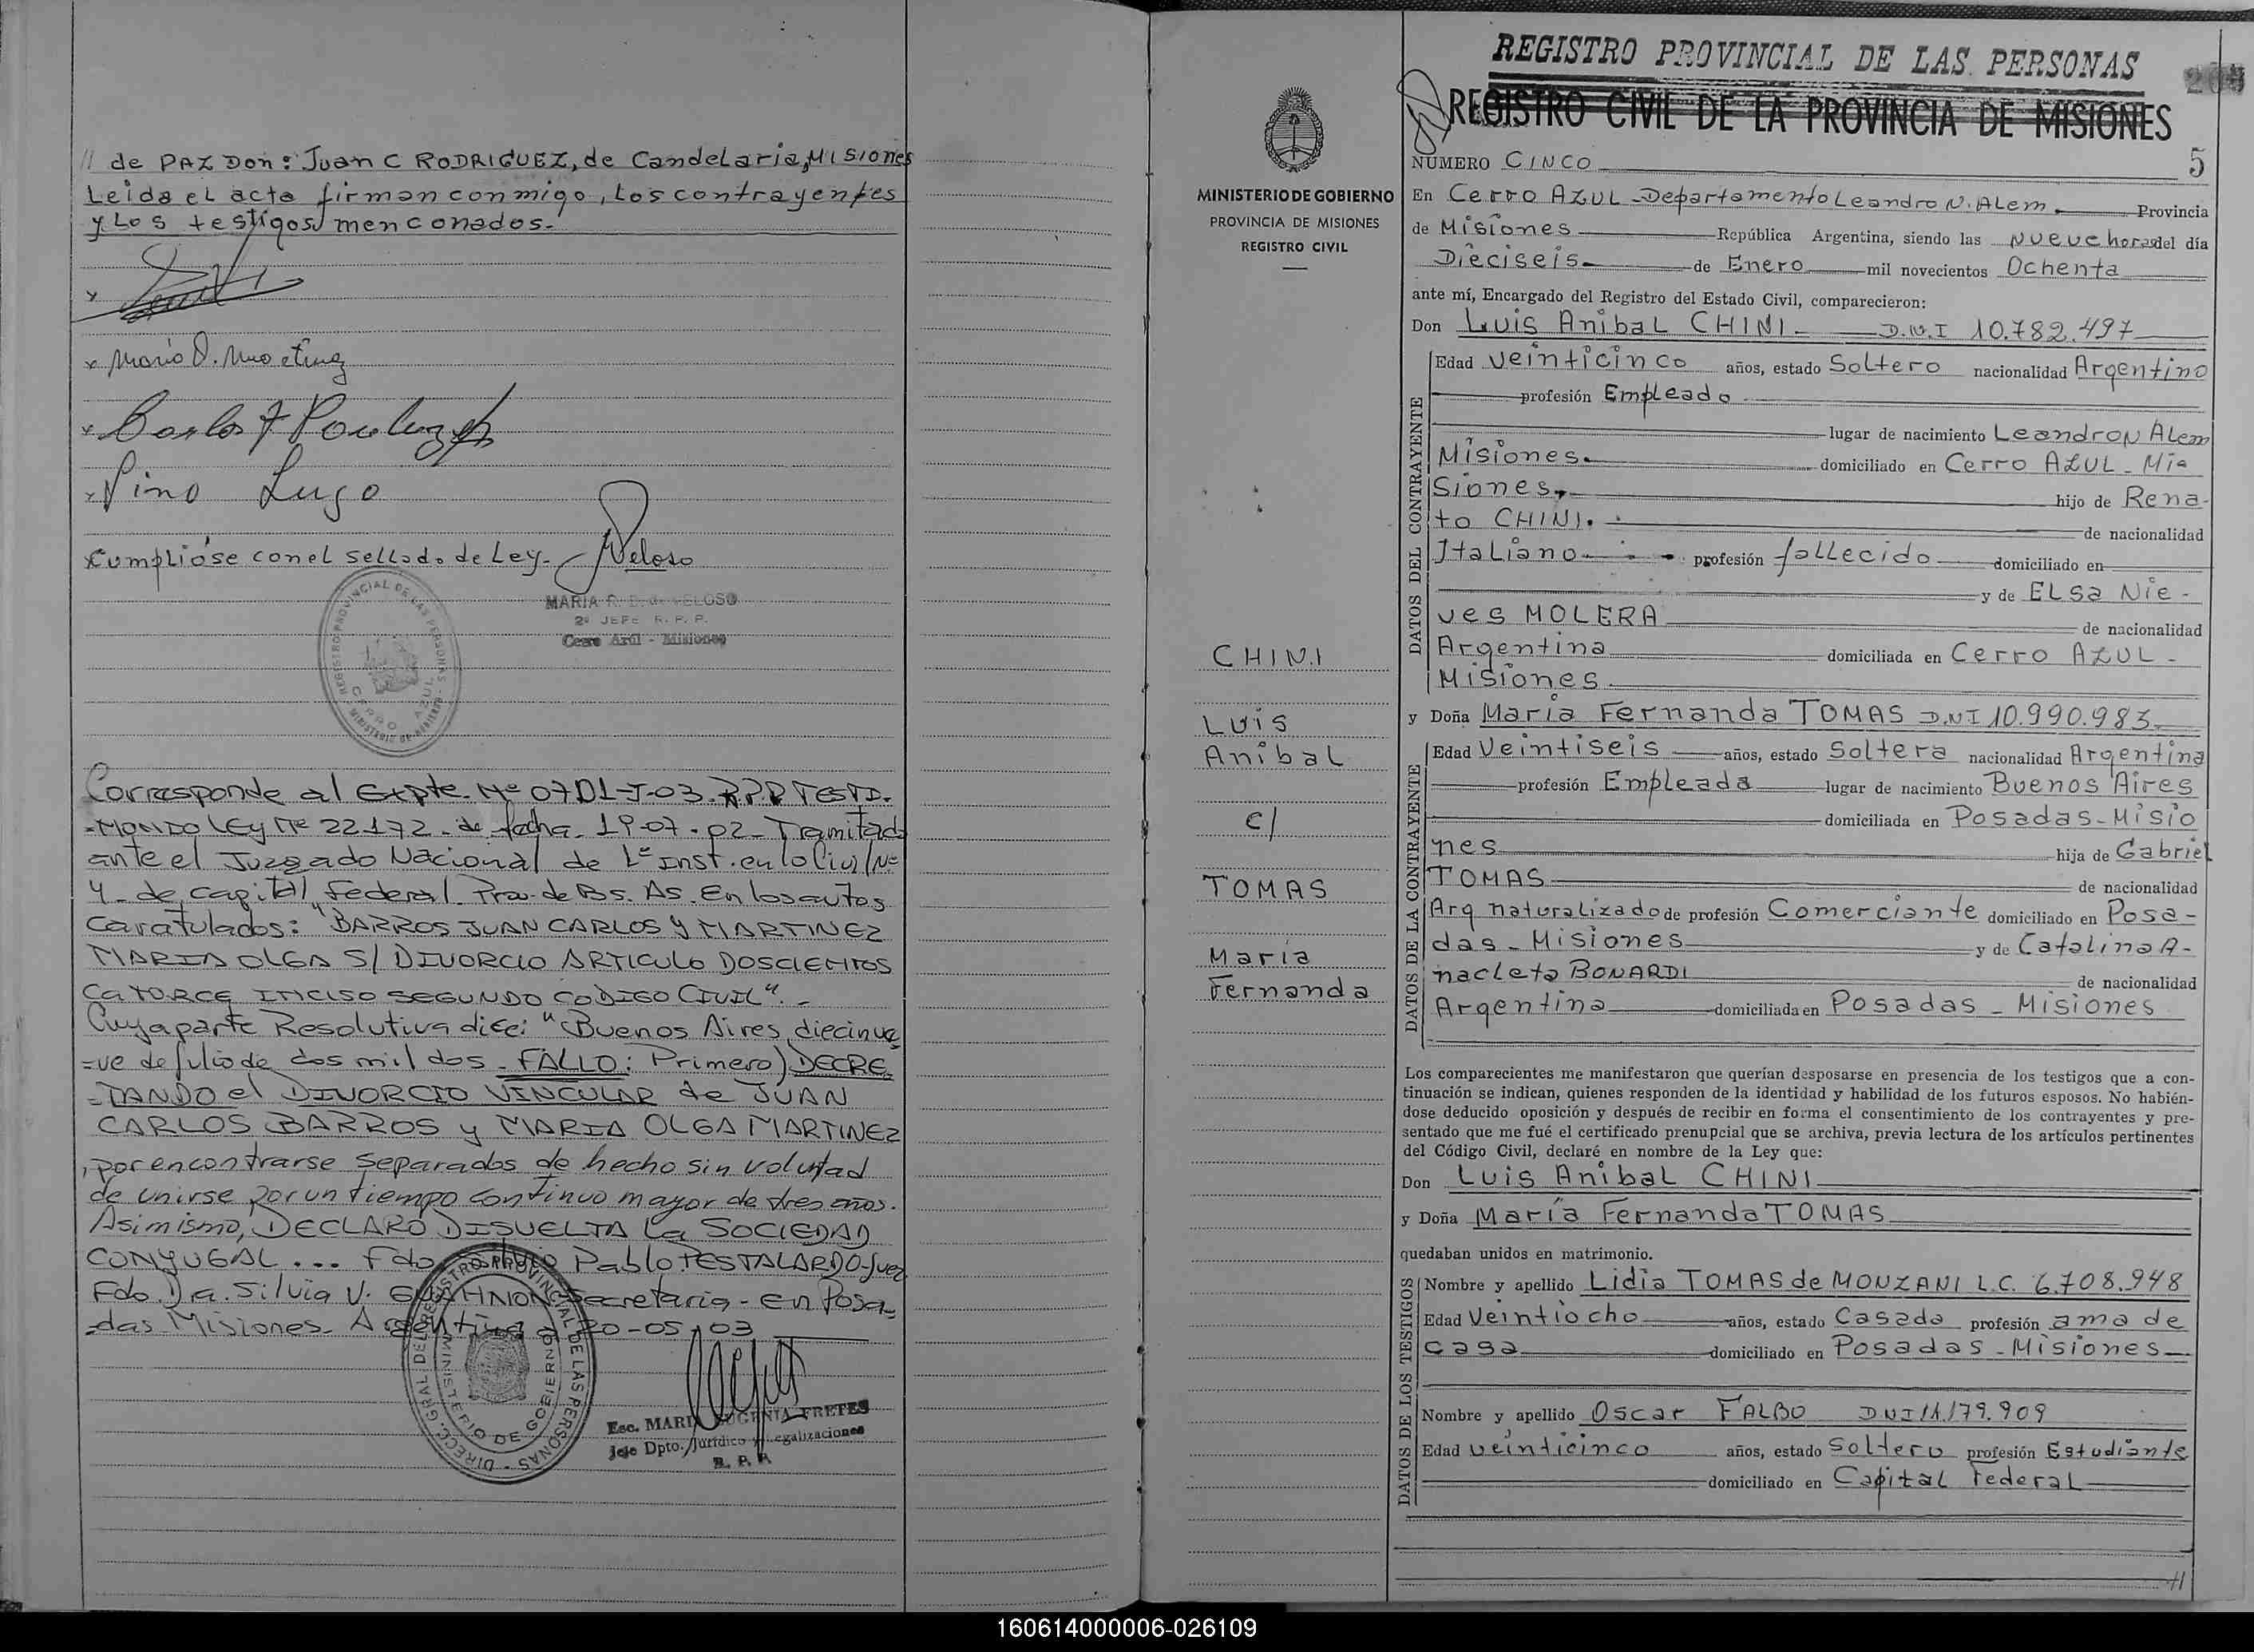 // de PAZ Don: Juan C RODRIGUEZ, de Candelaria, Misiones
Leida el acta firman conmigo, los contrayentes
y los testigos menconados.-
x
x Mario
x Carlos
x Pino Lugo
Cumplióse con el sellado de Ley.- Veloso
MARIA R. B. de VELOSO
2º JEFE R. P. P.
Cerro Azúl - Misiones
REGISTRO PROVINCIAL DE LAS PERSONAS
CERRO AZUL
Corresponde al Expte. Nº 0701-J-03. R.P.P TESTI-
-MONIO LEY Nº 22.172. de fecha 19-07-02- Tramitado
ante el Juzgado Nacional de 1º Inst. en lo Civil Nº
4- de capital Federal. Prov. de Bs. As. En los autos
Caratulados: "BARROS JUAN CARLOS Y MARTINEZ
MARIA OLGA S/ DIVORCIO ARTICULO DOSCIENTOS
CATORCE INCISO SEGUNDO CODIGO CIVIL".-
Cuya parte Resolutiva dice: "Buenos Aires, diecinue
-ve de julio de dos mil dos. FALLO: Primero) DECRE
-TANDO el DIVORCIO VINCULAR de JUAN
CARLOS BARROS y MARIA OLGA MARTINEZ
, por encontrarse separados de hecho sin voluntad
de unirse por un tiempo continuo mayor de tres años.
Asimismo, DECLARO DISUELTA la SOCIEDAD
CONYUGAL... Fdo. Pablo PESTALARDO-Juez
Fdo. Dra. Silvia V. Secretaria- en Posa-
-das Misiones- Argentina a 20-05-03
DIRECC. GRAL DEL REGISTRO PROVINCIAL DE LAS PERSONAS
MINISTERIO DE GOBIERNO
Esc. MARIA EUGENIA FRETES
Jefe Dpto. Jurídico y Legalizaciones
R. P. P.
REGISTRO PROVINCIAL DE LAS PERSONAS
REGISTRO CIVIL DE LA PROVINCIA DE MISIONES
MINISTERIO DE GOBIERNO
PROVINCIA DE MISIONES
REGISTRO CIVIL
CHINI
Luis
Anibal
c/
TOMAS
María
Fernanda
NUMERO CINCO 5
En Cerro AZUL - Departamento Leandro N. Alem. Provincia
de Misiones República Argentina, siendo las nueve horas del día
Dieciseis. de Enero mil novecientos Ochenta
ante mí, Encargado del Registro del Estado Civil, comparecieron:
Don Luis Anibal CHINI - D.N.I 10.782.497
DATOS DEL CONTRAYENTE
Edad veinticinco años, estado Soltero nacionalidad Argentino
profesión Empleado
lugar de nacimiento Leandro N Alem
Misiones. domiciliado en Cerro AZUL - Mi=
Siones. hijo de Rena-
to CHINI. de nacionalidad
Italiano profesión fallecido domiciliado en
y de ELSa Nie-
ves MOLERA de nacionalidad
Argentina domiciliada en Cerro AZUL -
Misiones
y Doña María Fernanda TOMAS D.N I 10.990.983
DATOS DE LA CONTRAYENTE
Edad Veintiseis años, estado Soltera nacionalidad Argentina
profesión Empleada lugar de nacimiento Buenos Aires
domiciliada en Posadas - Misio
nes hija de Gabriel
TOMAS de nacionalidad
Arg naturalizado de profesión Comerciante domiciliado en Posa-
das - Misiones y de Catalina A-
nacleta BONARDI de nacionalidad
Argentina domiciliada en Posadas - Misiones
Los comparecientes me manifestaron que querían desposarse en presencia de los testigos que a con-
tinuación se indican, quienes responden de la identidad y habilidad de los futuros esposos. No habién-
dose deducido oposición y después de recibir en forma el consentimiento de los contrayentes y pre-
sentado que me fué el certificado prenupcial que se archiva, previa lectura de los artículos pertinentes
del Código Civil, declaré en nombre de la Ley que:
Don Luis Anibal CHINI
y Doña María Fernanda TOMAS
quedaban unidos en matrimonio.
DATOS DE LOS TESTIGOS
Nombre y apellido Lidia TOMAS de MONZANI L.C. 6.708.948
Edad Veintiocho años, estado Casada profesión ama de
casa domiciliado en Posadas - Misiones
Nombre y apellido Oscar FALBO DNI 11.179.909
Edad veinticinco años, estado Soltero profesión Estudiante
domiciliado en Capital Federal
//
160614000006-026109